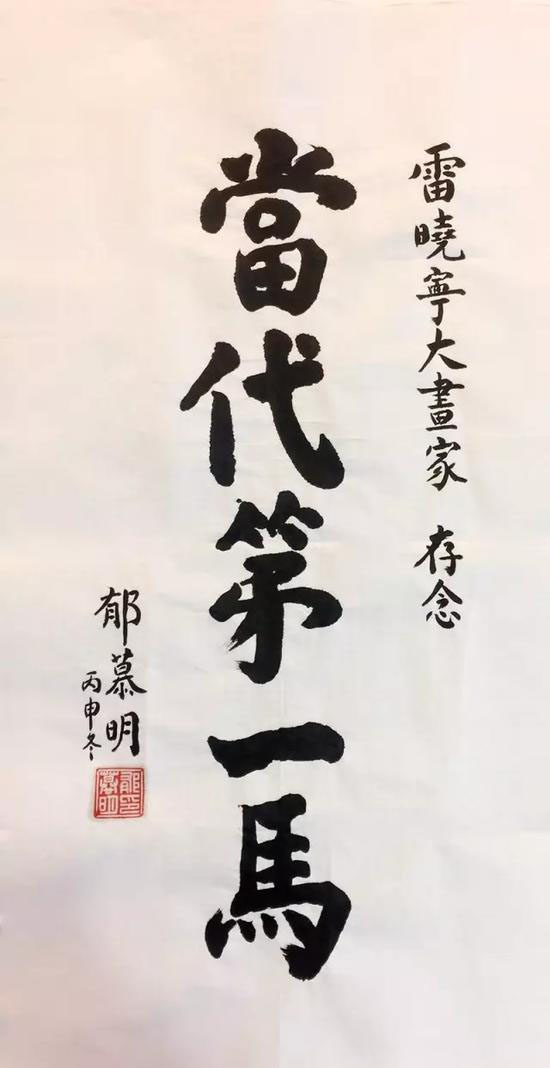 雷曉寧大畫家 存念
當代第一馬
郁慕明
丙申冬